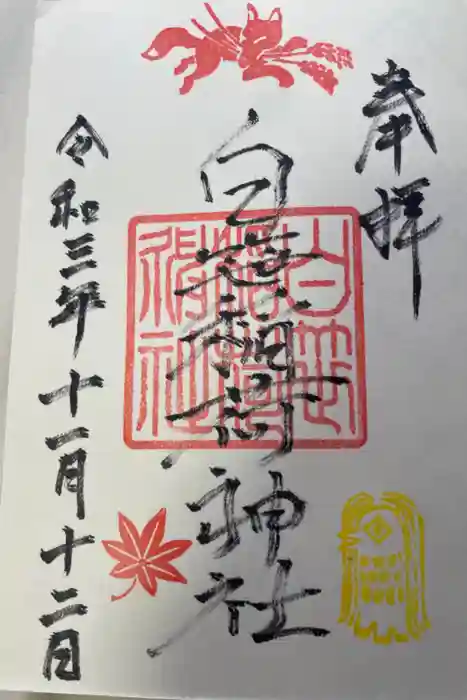 奉拝
白笹稲荷神社
白笹稲荷神社
令和三年十一月十二日